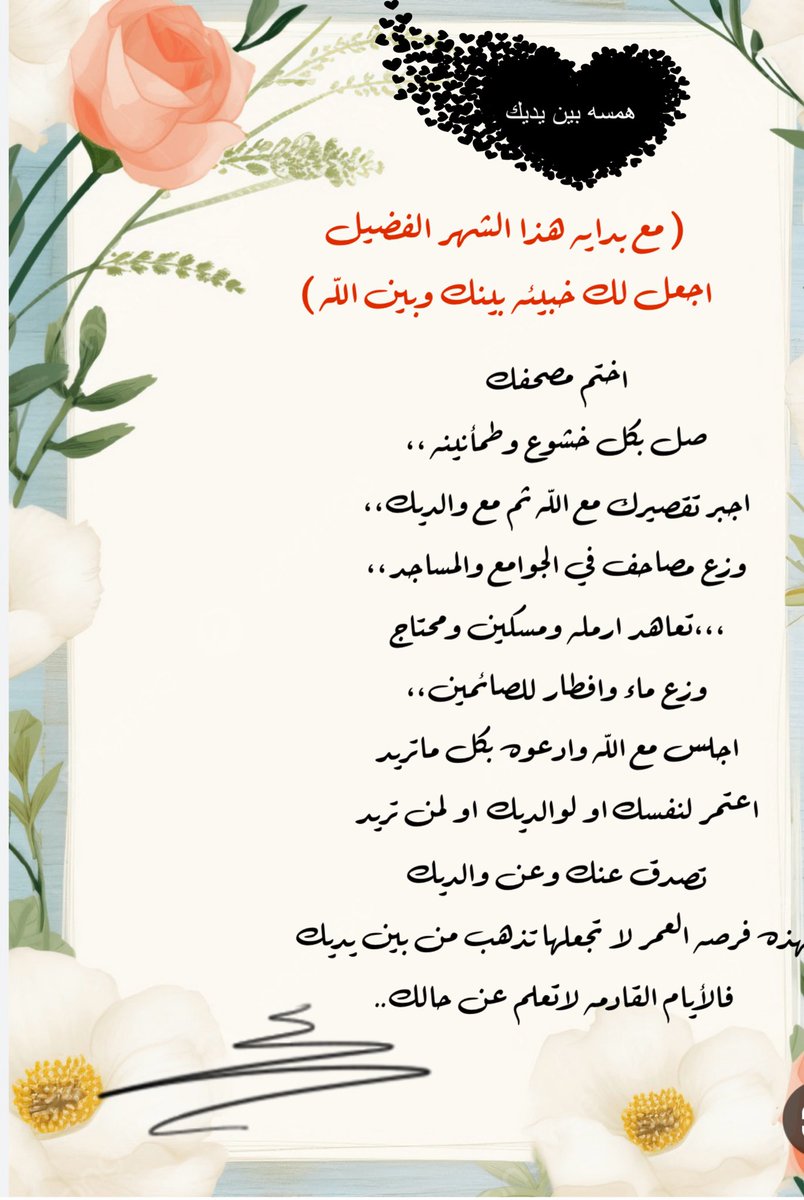 همسه بين يديك
( مع بدايه هذا الشهر الفضيل
اجعل لك خبيئه بينك وبين الله )
اختم مصحفك
صل بكل خشوع وطمأنينه ،،
اجبر تقصيرك مع الله ثم مع والديك،،
وزع مصاحف في الجوامع والمساجد،،
،،،تعاهد ارمله ومسكين ومحتاج
وزع ماء وافطار للصائمين،،
اجلس مع الله وادعوه بكل ماتريد
اعتمر لنفسك او لوالديك او لمن تريد
تصدق عنك وعن والديك
هذه فرصه العمر لا تجعلها تذهب من بين يديك
فالأيام القادمه لاتعلم عن حالك..